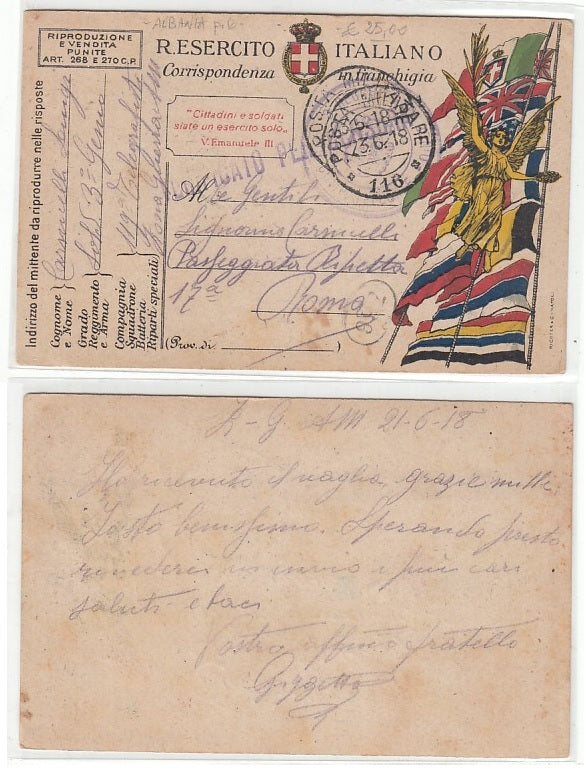 ALBANIA p.R.
£ 25,00
RIPRODUZIONE
E VENDITA
PUNITE
ART. 268 E 270 C.P.
R. ESERCITO ITALIANO
Corrispondenza in franchigia
"Cittadini e soldati
siate un esercito solo„
V. Emanuele III
POSTA MILITARE
23.6.18
116
Alle Gentili
Signorine Carminelli
Passeggiata Ripetta
17a
Roma
(Prov. di )
Indirizzo del mittente da riprodurre nelle risposte
Cognome
e Nome
Grado
Reggimento
e Arma
Sold. 3° Genio
Compagnia
Squadrone
Batteria
Riparti speciali
RICHTER & C. NAPOLI
Z-G. AM 21-6-18
Ho ricevuto il vaglia, grazie mille
Io sto benissimo. Sperando presto
rivederci vi invio i più cari
saluti e baci
Vostro aff.mo fratello
Gigetto